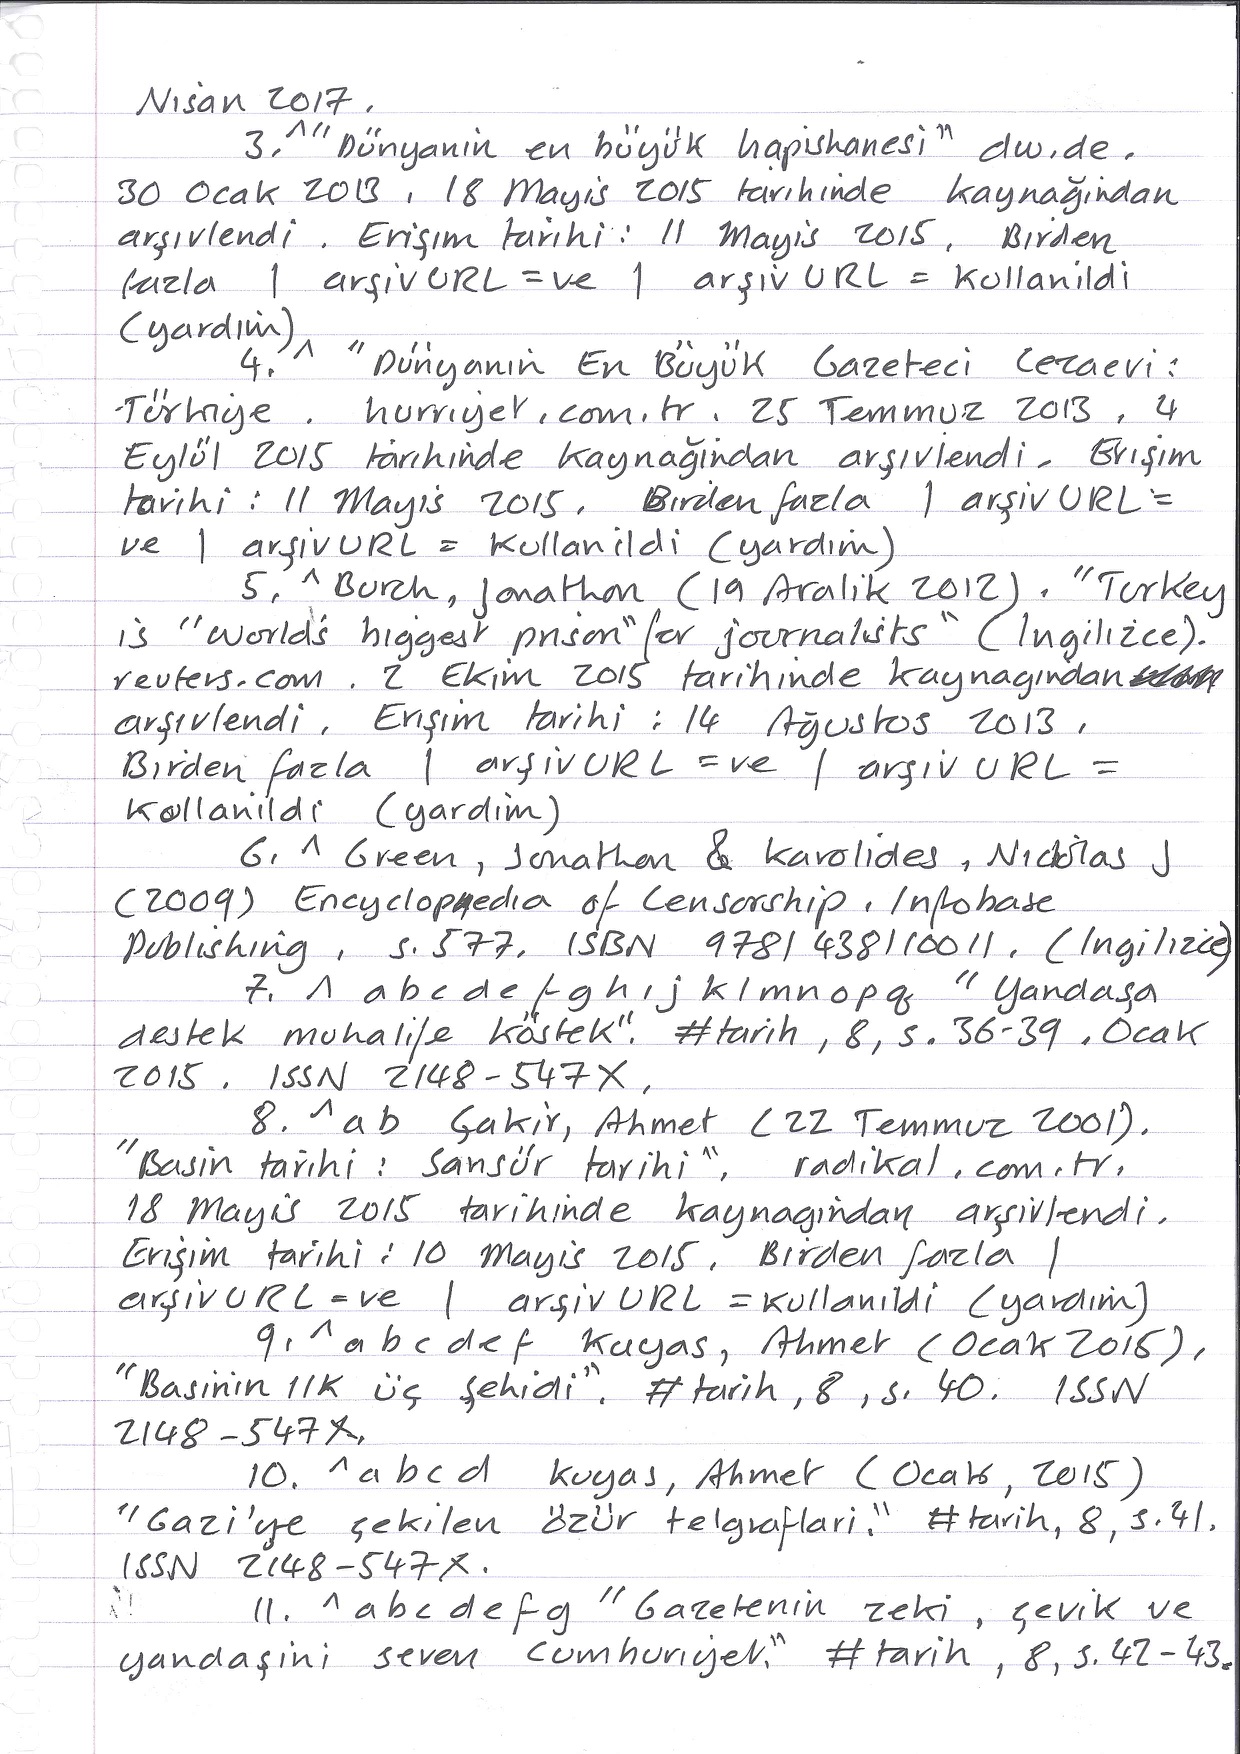 Nisan 2017.
3. ^ "Dünyanin en büyük hapishanesi" dw.de.
30 Ocak 2013, 18 Mayis 2015 tarihinde kaynağindan
arşivlendi. Erişim tarihi: 11 Mayis 2015. Birden
fazla | arşivURL = ve | arşivURL = Kullanildi
(yardim)
4. ^ "Dünyanin En Büyük Gazeteci Cezaevi:
Türkiye. hurriyet.com.tr. 25 Temmuz 2013, 4
Eylül 2015 tarihinde kaynağindan arşivlendi. Erişim
tarihi: 11 Mayis 2015. Birden fazla | arşivURL =
ve | arşivURL = Kullanildi (yardim)
5. ^ Burch, Jonathon (19 Aralik 2012). "Turkey
is "world's biggest prison" for journalists" (Ingilizce).
reuters.com. 2 Ekim 2015 tarihinde kaynagindan
arşivlendi. Erişim tarihi: 14 Ağustos 2013.
Birden fazla | arşivURL = ve | arşivURL =
Kullanildi (yardim)
6. ^ Green, Jonathon & Karolides, Nicholas J
(2009) Encyclopaedia of Censorship. Infobase
Publishing, s. 577. ISBN 9781438110011. (Ingilizce)
7. ^ a b c d e f g h i j k l m n o p q "Yandaşa
destek muhalife köstek". #tarih, 8, s. 36-39. Ocak
2015. ISSN 2148-547X.
8. ^ a b Çakir, Ahmet (22 Temmuz 2001).
"Basin tarihi: Sansür tarihi". radikal.com.tr.
18 Mayis 2015 tarihinde kaynagindan arşivlendi.
Erişim tarihi: 10 Mayis 2015. Birden fazla |
arşivURL = ve | arşivURL = Kullanildi (yardim)
9. ^ a b c d e f Kuyas, Ahmet (Ocak 2015),
"Basinin ilk üç şehidi". #tarih, 8, s. 40. ISSN
2148-547X.
10. ^ a b c d Kuyas, Ahmet (Ocak, 2015)
"Gazi'ye çekilen özür telgraflari." #tarih, 8, s. 41.
ISSN 2148-547X.
11. ^ a b c d e f g "Gazetenin zeki, çevik ve
yandaşini seven Cumhuriyet." #tarih, 8, s. 42-43.